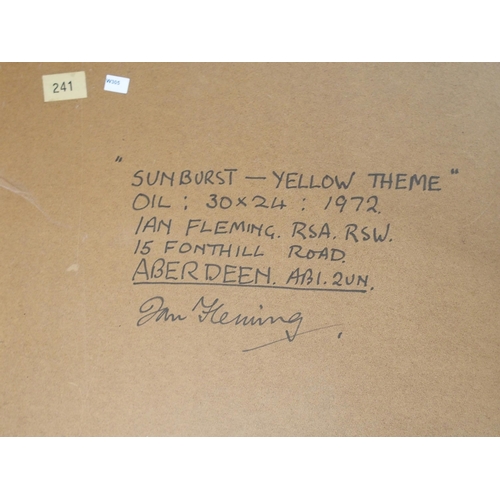 241
W305
"SUNBURST — YELLOW THEME"
OIL : 30×24 : 1972.
IAN FLEMING. RSA. RSW.
15 FONTHILL ROAD.
ABERDEEN. AB1. 2UN.
Ian Fleming.